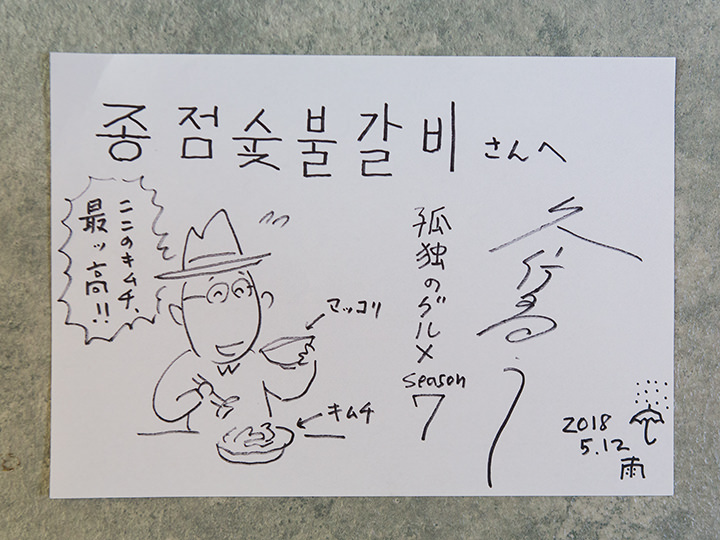 종점숯불갈비さんへ
ここのキムチ、
最ッ高!!
マッコリ
キムチ
孤独のグルメ
season
7
久住昌之
2018
5.12
雨